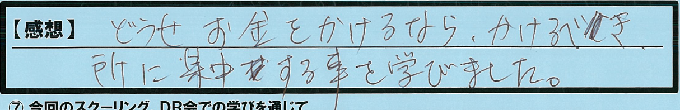 【感想】 どうせお金をかけるなら、かけるべき
所に集中する事を学びました。
⑦ 今回のスクーリング、DR会での学びを通じて